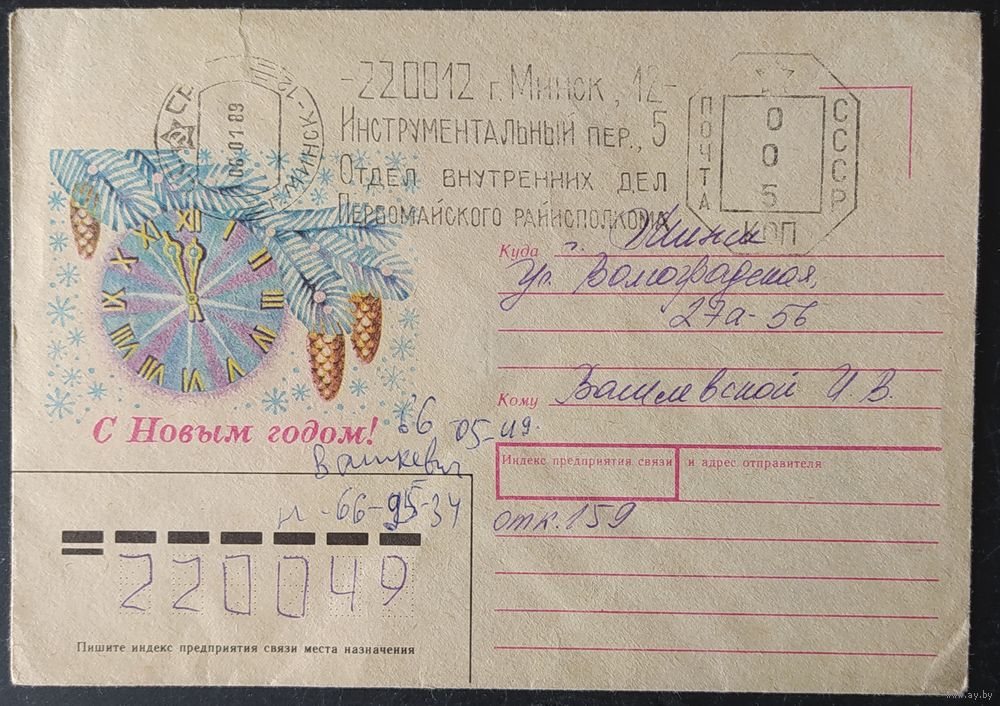 -220012 г. Минск, 12-
Инструментальный пер., 5
Отдел внутренних дел
Первомайского райисполкома
06.01.89
МИНСК-12
ПОЧТА
СССР
005
КОП
Куда г. Минск
ул. Волгоградская,
27а-56
Кому Вашлевской И. В.
С Новым годом!
66 05-49.
Вашкевич
66-95-34
Индекс предприятия связи и адрес отправителя
отк. 159
220049
Пишите индекс предприятия связи места назначения
www.ay.by